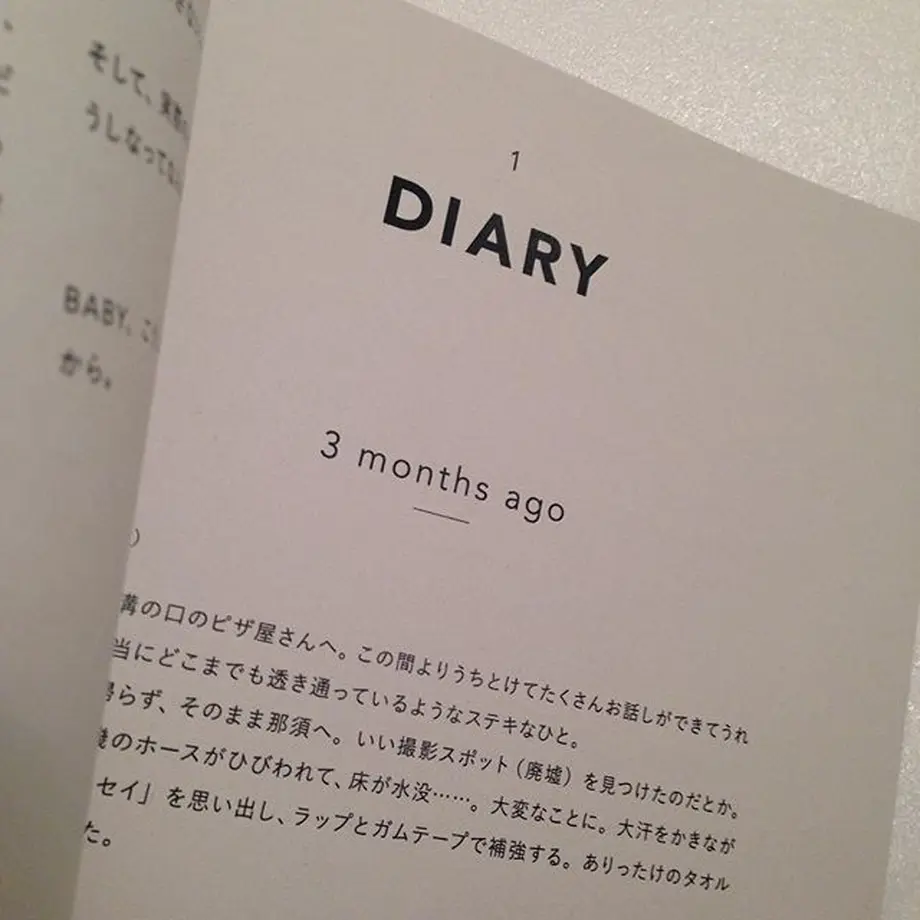 そして、実際
うしなってな
BABY、こ
から。
1
DIARY
3 months ago
溝の口のピザ屋さんへ。この間よりうちとけてたくさんお話しができてうれ
当にどこまでも透き通っているようなステキなひと。
帰らず、そのまま那須へ。いい撮影スポット（廃墟）を見つけたのだとか。
機のホースがひびわれて、床が水没……。大変なことに。大汗をかきなが
セイ」を思い出し、ラップとガムテープで補強する。ありったけのタオル
た。